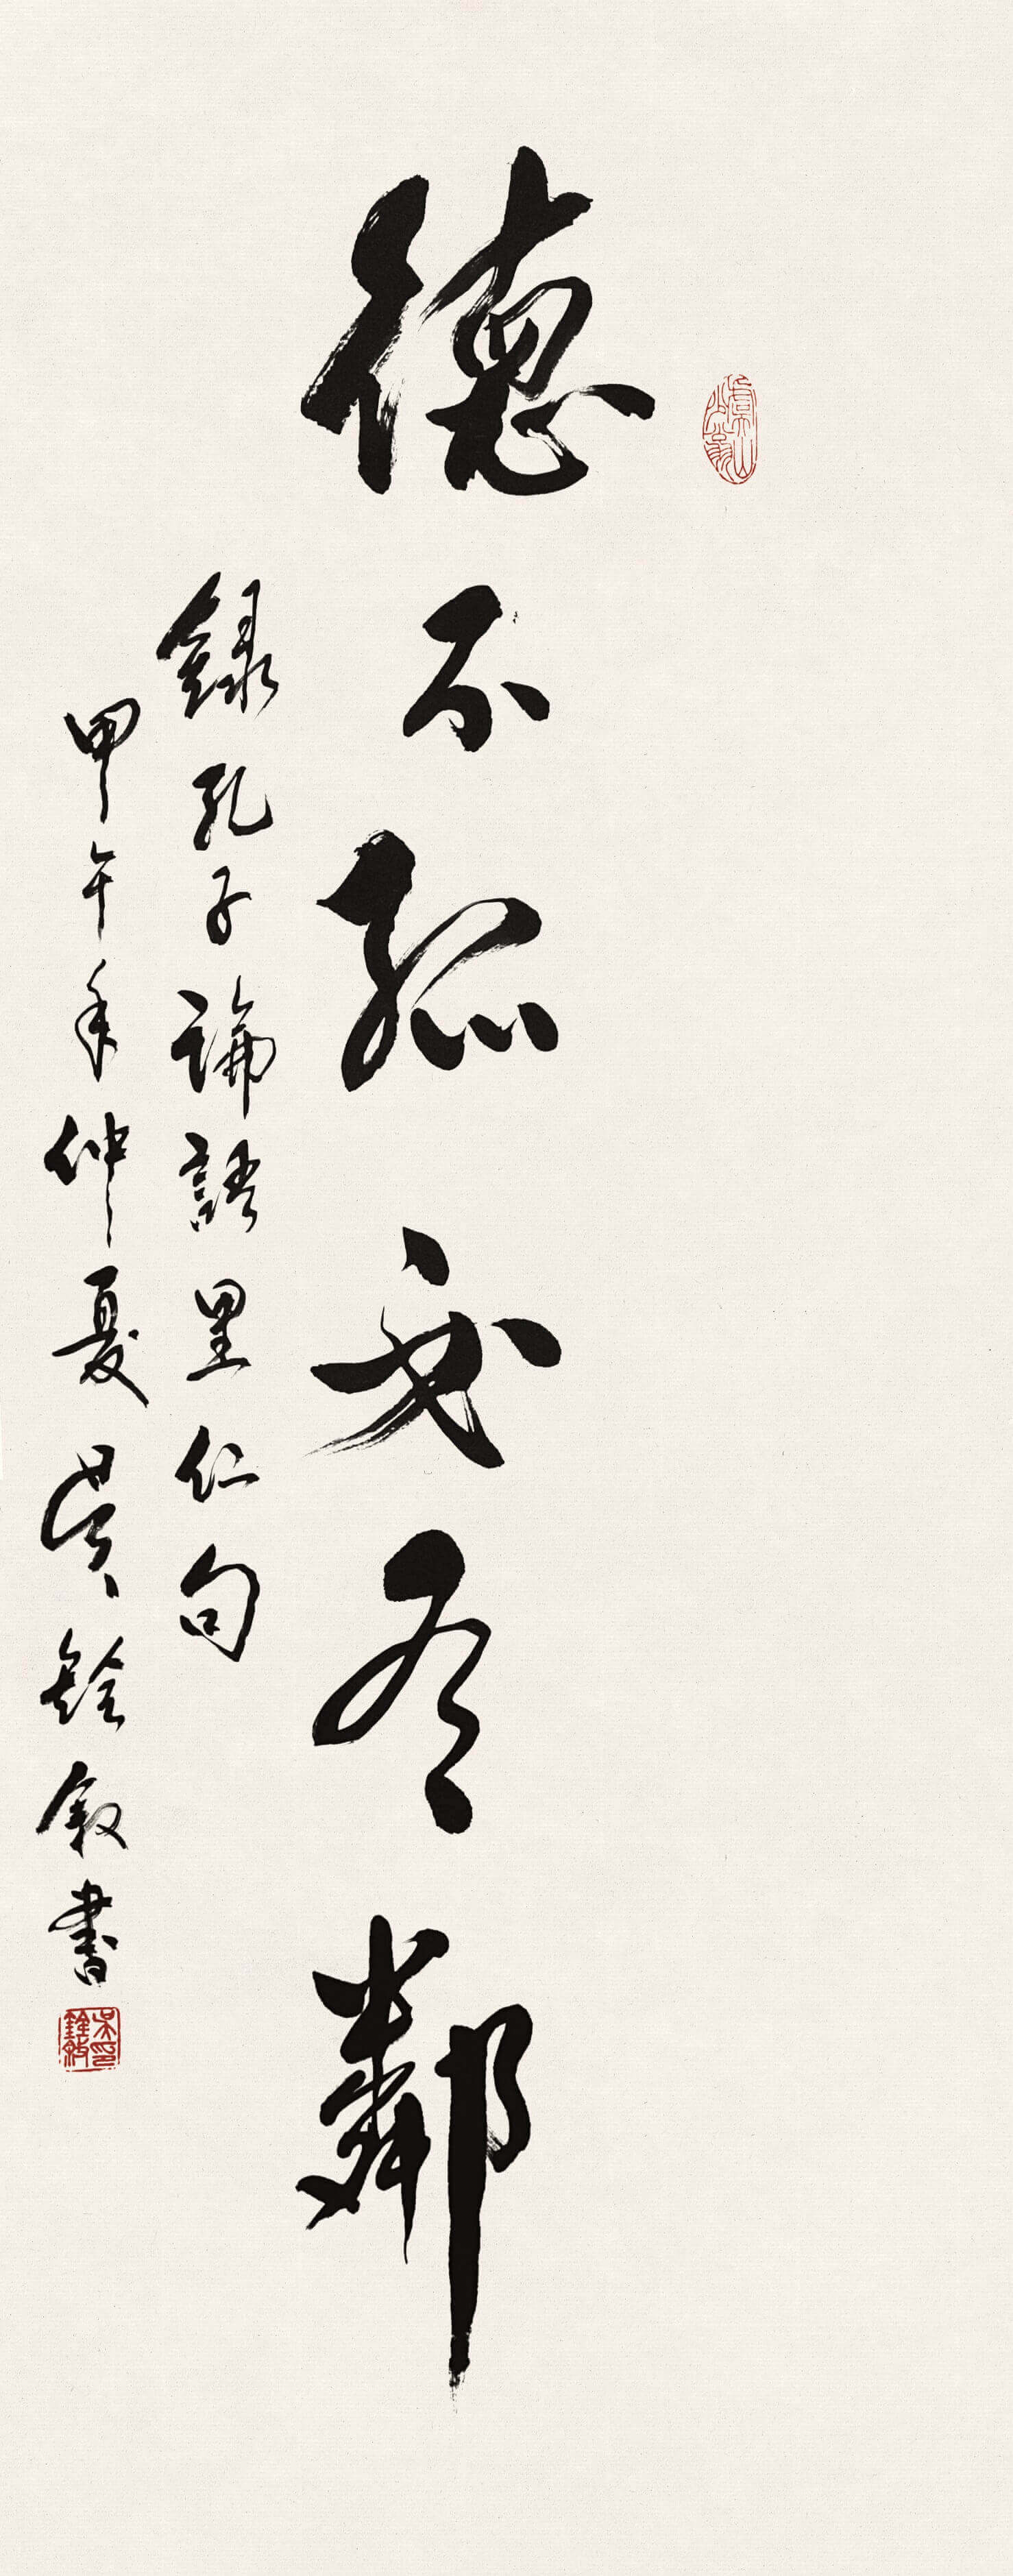 德不孤必有鄰
錄孔子論語里仁句
甲午年仲夏吳銓敘書